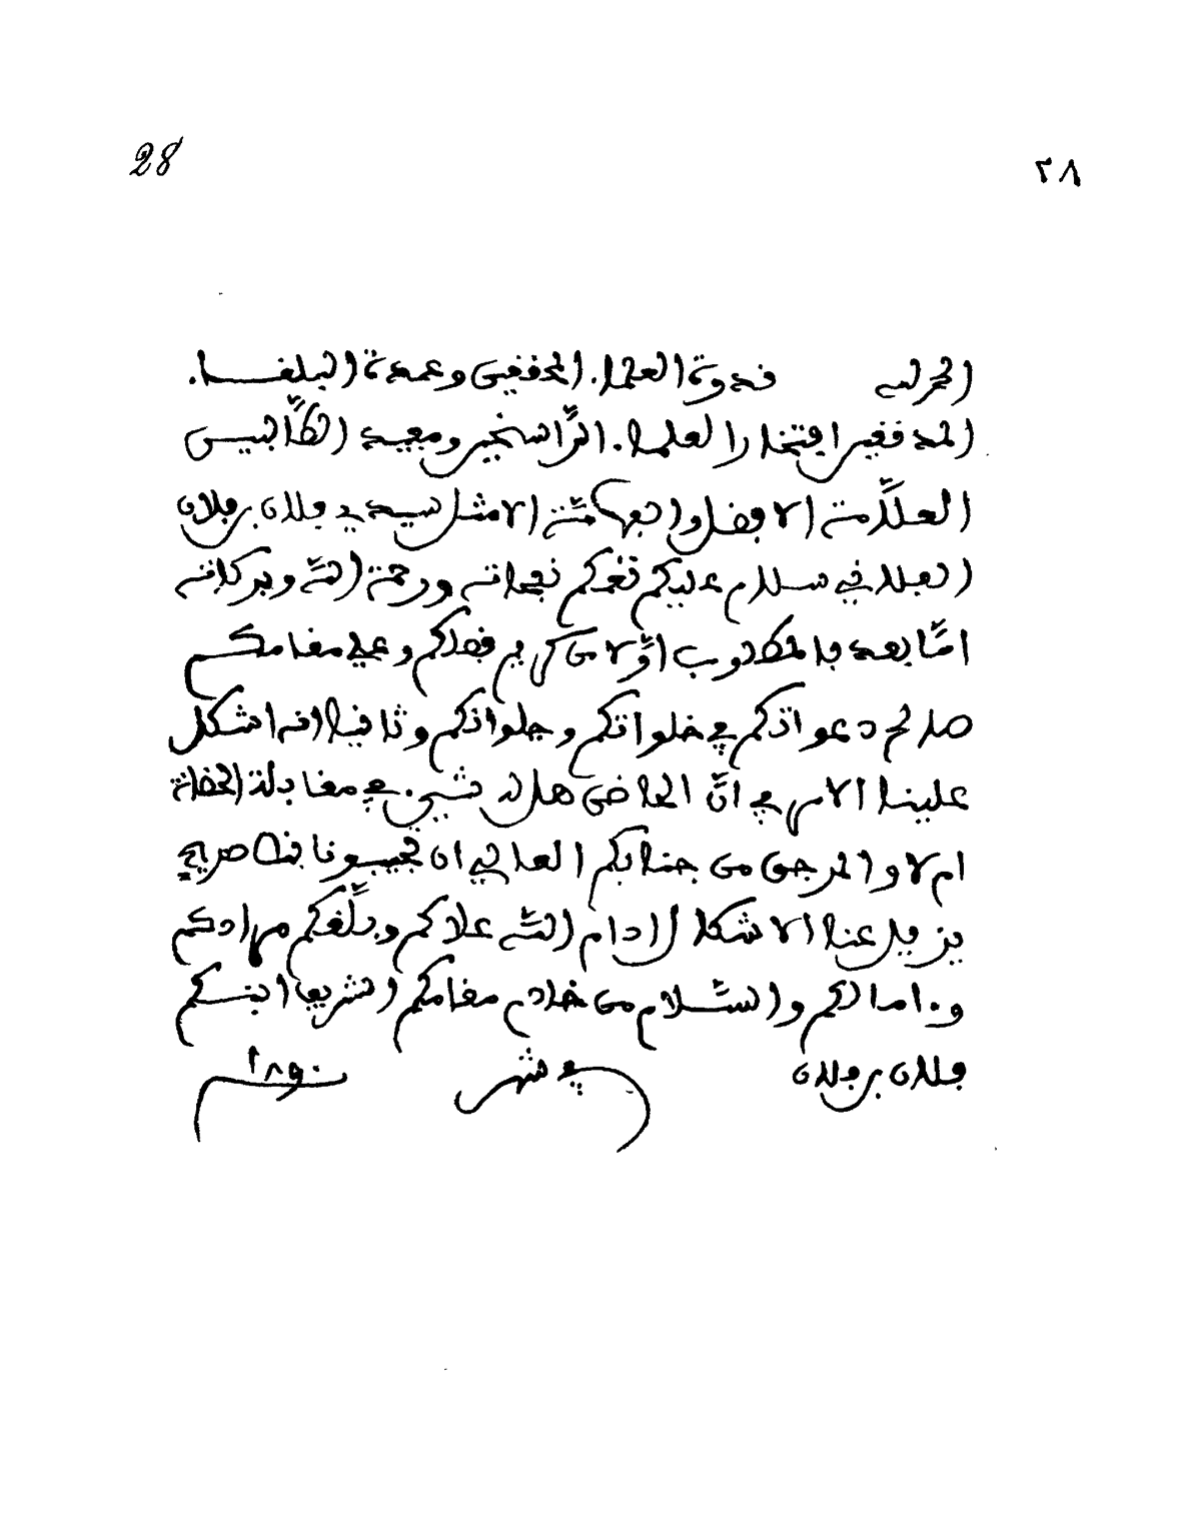 28 ٢٨
الحمد لله قدوة العلماء المحققين وعمدة البلغاء
المدققين افتخار العلماء الراسخين ومفيد الطالبين
العلّامة الافضل والفهامة الامثل سيدي فلان بن فلان
الفلاني سلام عليكم نعمكم نفحاته ورحمة الله وبركاته
امّا بعد فالمطلوب اوّلا من كريم فضلكم وعلي مقامكم
صالح دعواتكم في خلواتكم وجلواتكم وثانيا انه اشكل
علينا الامر في انّ القاضي هل له شيء في مقابلة الخطاة
ام لا والمرجو من جنابكم العالي ان تجيبونا بنص صريح
يزيل عنا الاشكال ادام الله علاكم وبلّغكم مرادكم
وءامالكم والسّلام من خادم مقامكم الشريف ابنكم
فلان بن فلان في شهر سنة ١٨٩٠